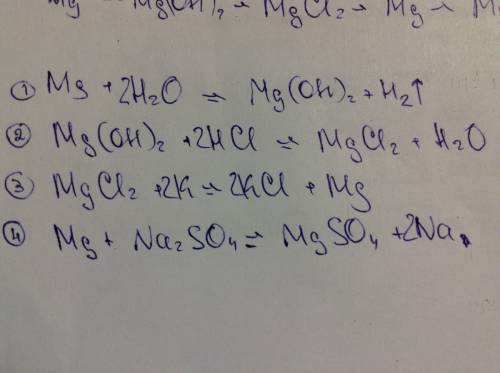 Mg Mg(OH)₂ → MgCl₂ → Mg →
① Mg + 2H₂O = Mg(OH)₂ + H₂↑
② Mg(OH)₂ + 2HCl = MgCl₂ + H₂O
③ MgCl₂ + 2K = 2KCl + Mg
④ Mg + Na₂SO₄ = MgSO₄ + 2Na